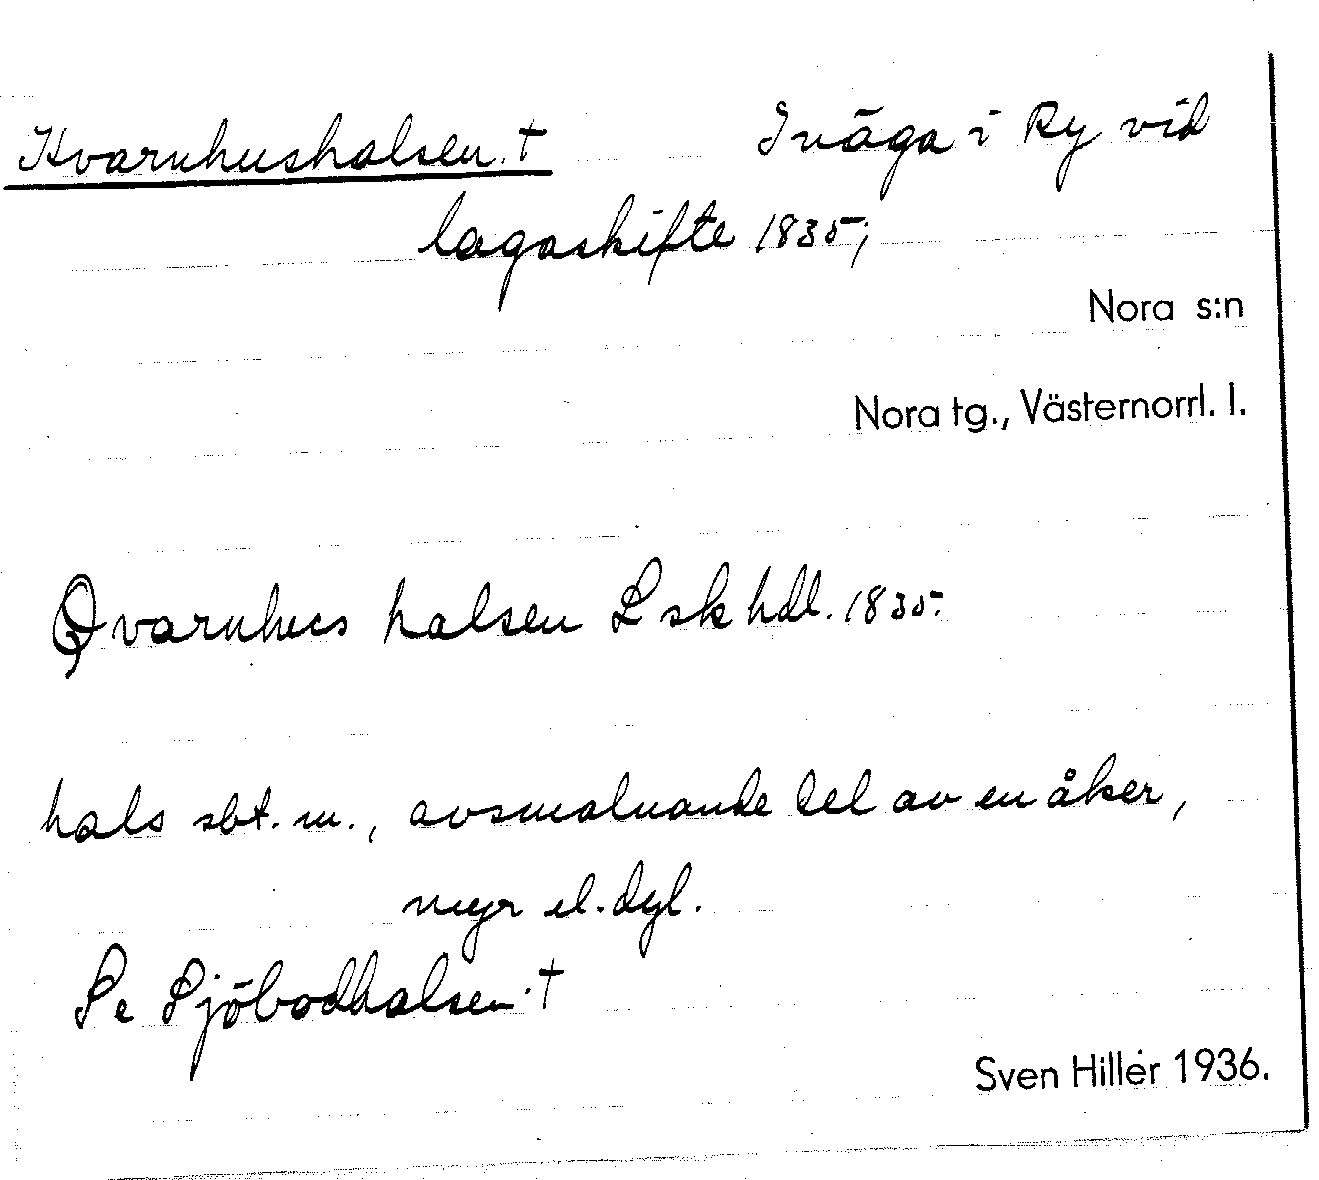 Kvarnhushalsen. † Inäga i Ry vid
lagaskifte 1835;
Nora s:n
Nora tg., Västernorrl. l.
Qvarnhus halsen L sk hdl. 1835.
hals sbt. m., avsmalnande del av en åker,
myr el. dyl.
Se Sjöbodhalsen. †
Sven Hillér 1936.